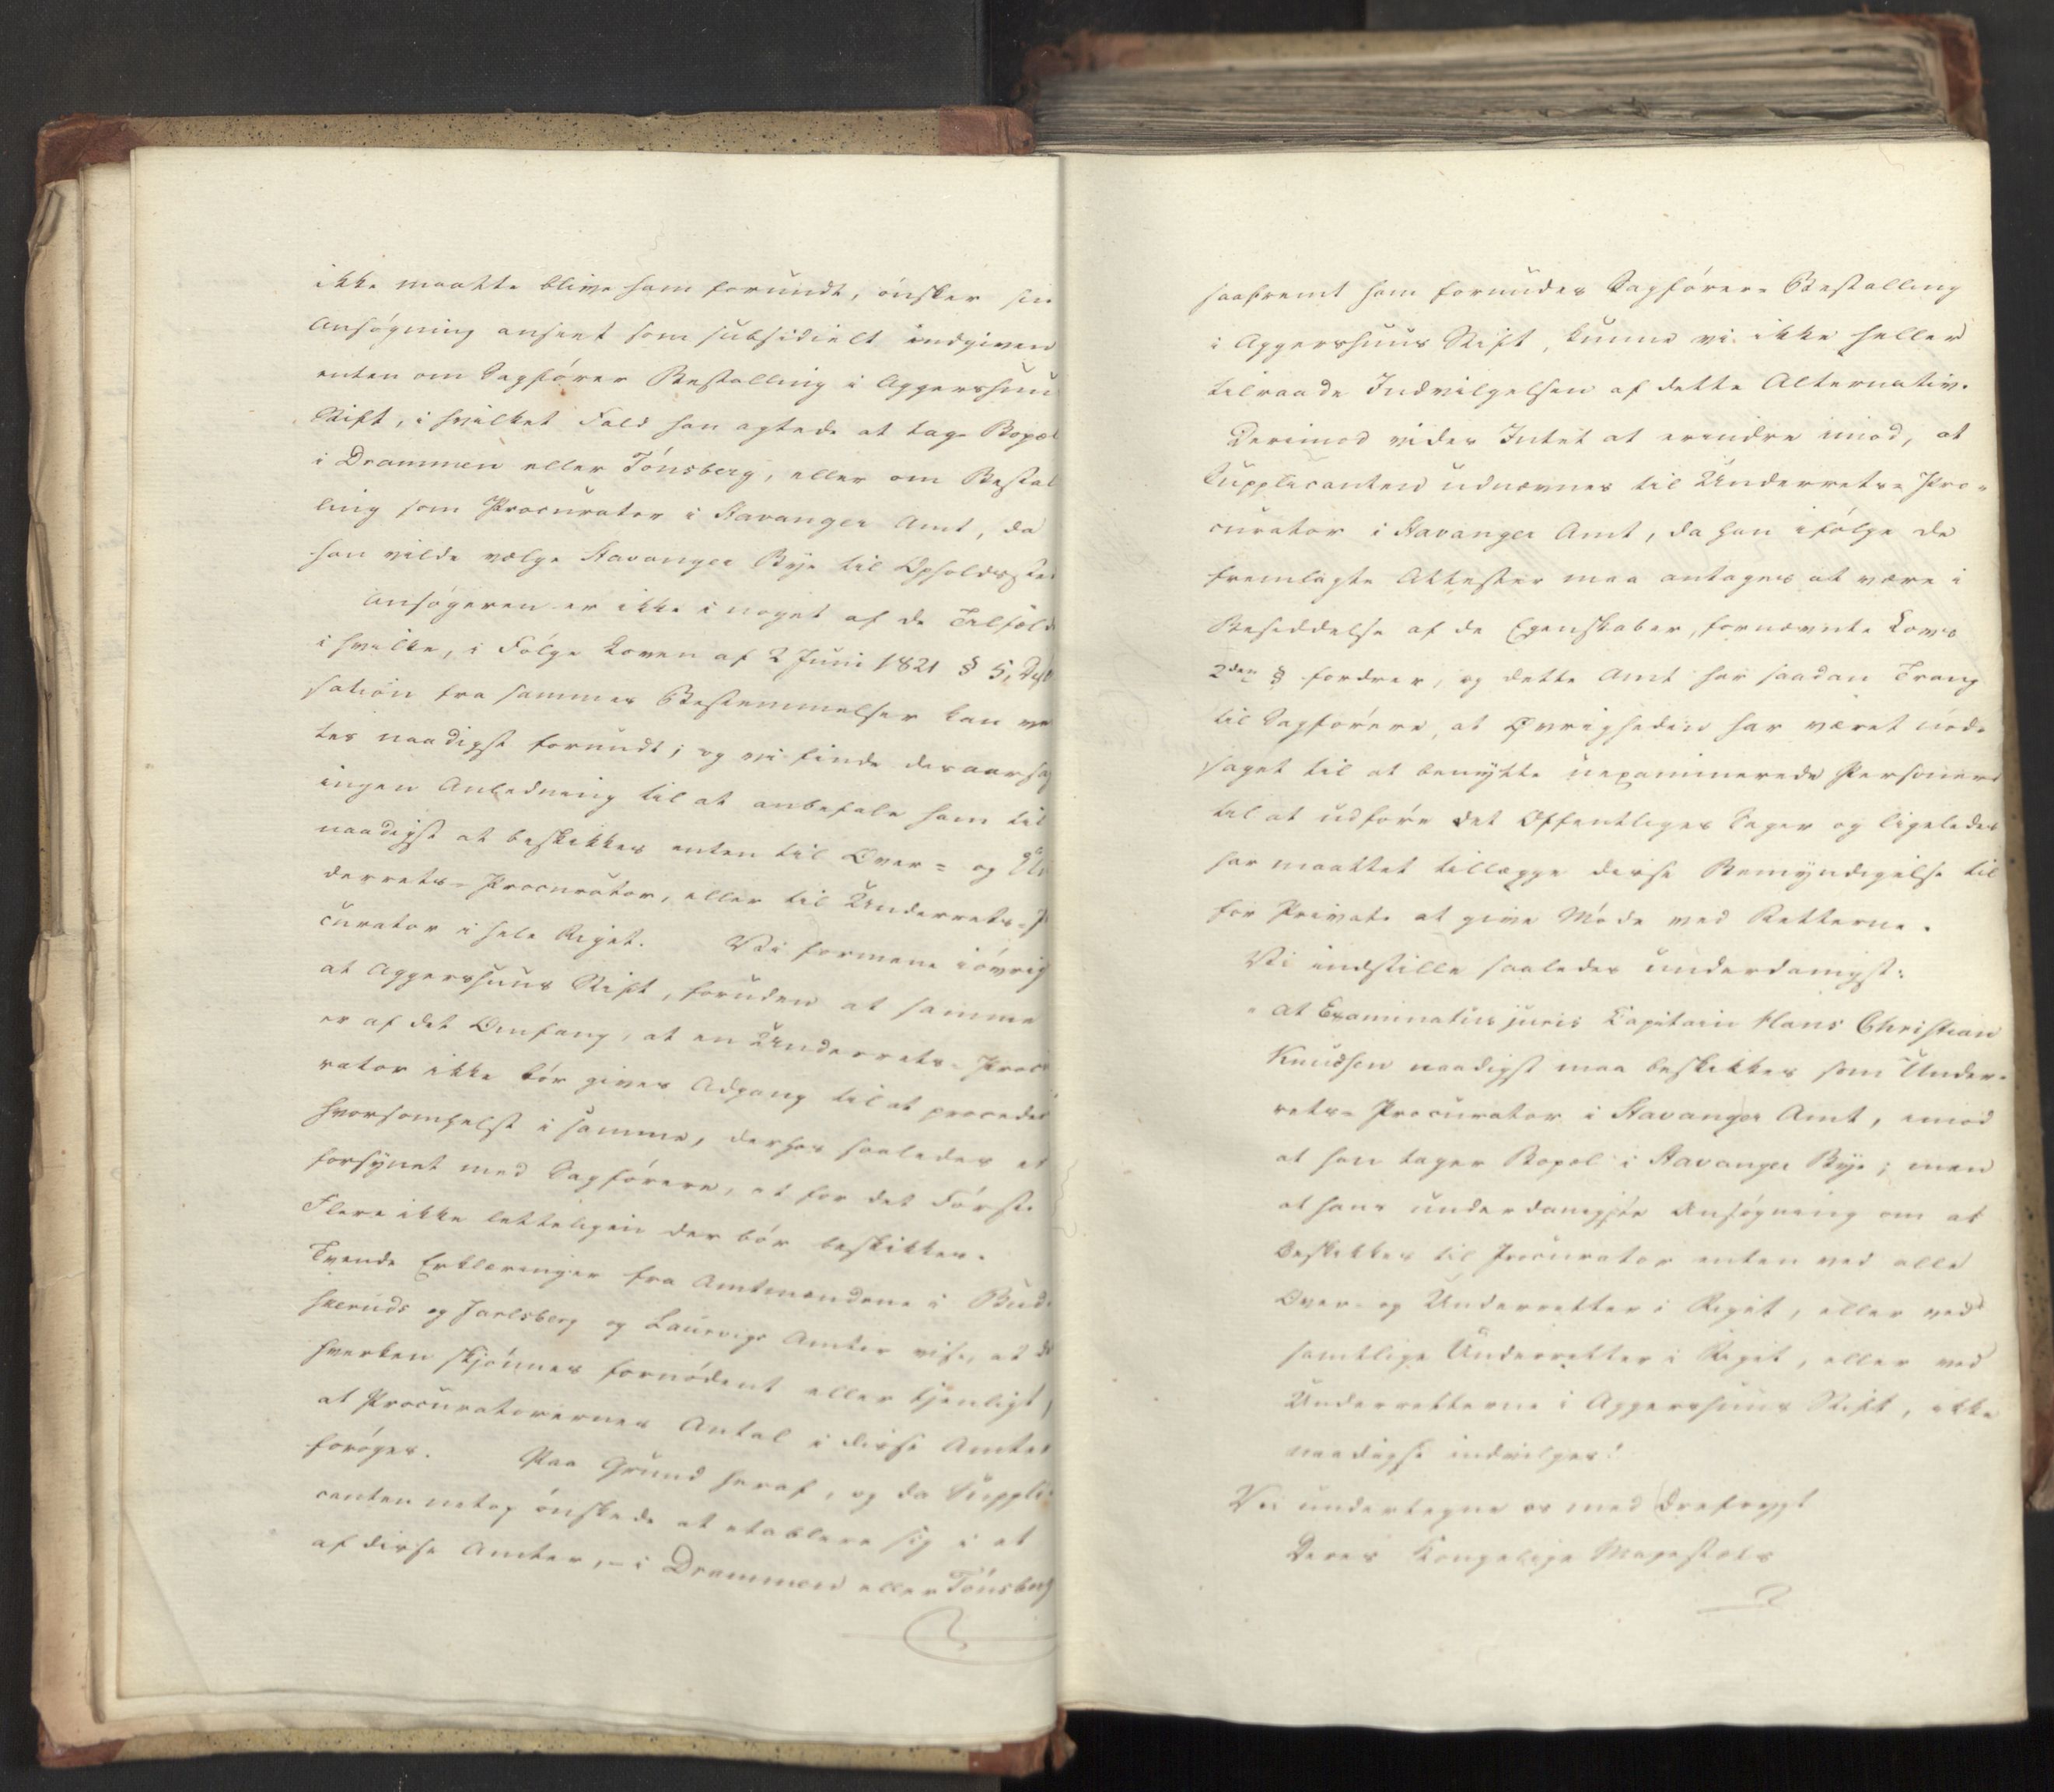 ikke maatte blive ham forundt, ønsker sin
Ansøgning anseet som subsidielt indgiven
enten om Sagfører Bestalling i Aggershuus
Stift, i hvilket Fald han agtede at tage Bopæl
i Drammen eller Tønsberg, eller om Bestal
ling som Procurator i Stavanger Amt, da
han vilde vælge Stavanger Bye til Opholdssted
Ansøgeren er ikke i noget af de Tilfælde
i hvilke, i Følge Loven af 2 Juni 1821 § 5, Dis
sation fra sammes Bestemmelser kan
tes naadigst forundt; og vi finde desaarsag
ingen Anledning til at anbefale ham til
naadigst at beskikkes enten til Over= og Un
derrets=Procurator, eller til Underrets=P
curator i hele Riget. Vi formene iøvrig
at Aggershuus Stift, foruden at samme
er af det Omfang, at en Underrets=Procu
rator ikke bør gives Adgang til at procedere
hvorsomhelst i samme, derhos saaledes er
forsynet med Sagførere, at for det Første
Flere ikke letteligen der bør beskikkes.
Tvende Erklæringer fra Amtmændene i Bud
skeruds og Jarlsberg og Laurvigs Amter vise, at d
hverken skjønnes fornødent eller tjenligt,
at Procuratorernes Antal i disse Amter
forøges. Paa Grund heraf, og da Suppli
canten netop ønskede at etablere sig i et
af disse Amter, – i Drammen eller Tønsberg
saafremt ham forundes Sagfører=Bestalling
i Aggershuus Stift, kunne vi ikke heller
tilraade Indvilgelsen af dette Alternativ.
Derimod vides Intet at erindre imod, at
Supplicanten udnævnes til Underrets=Pro=
curator i Stavanger Amt, da han ifølge de
fremlagte Attester maa antages at være i
Besiddelse af de Egenskaber, fornævnte Lovs
2den § fordrer, og dette Amt har saadan Trang
til Sagførere, at Øvrigheden har været nød=
saget til at benytte uexaminerede Personer
til at udføre det Offentliges Sager og ligeledes
har maattet tillægge disse Bemyndigelse til
for Private at give Møde ved Retterne.
Vi indstille saaledes underdanigst:
"at Examinatus juris Capitain Hans Christian
Knudsen naadigst maa beskikkes som Under=
rets=Procurator i Stavanger Amt, imod
at han tager Bopel i Stavanger Bye; men
at hans underdanigste Ansøgning om at
beskikkes til Procurator enten ved alle
Over- og Underretter i Riget, eller ved
samtlige Underretter i Riget, eller ved
Underretterne i Aggershuus Stift, ikke
naadigst indvilges!
Vi undertegne os med Ærefrygt
Deres Kongelige Majestæts